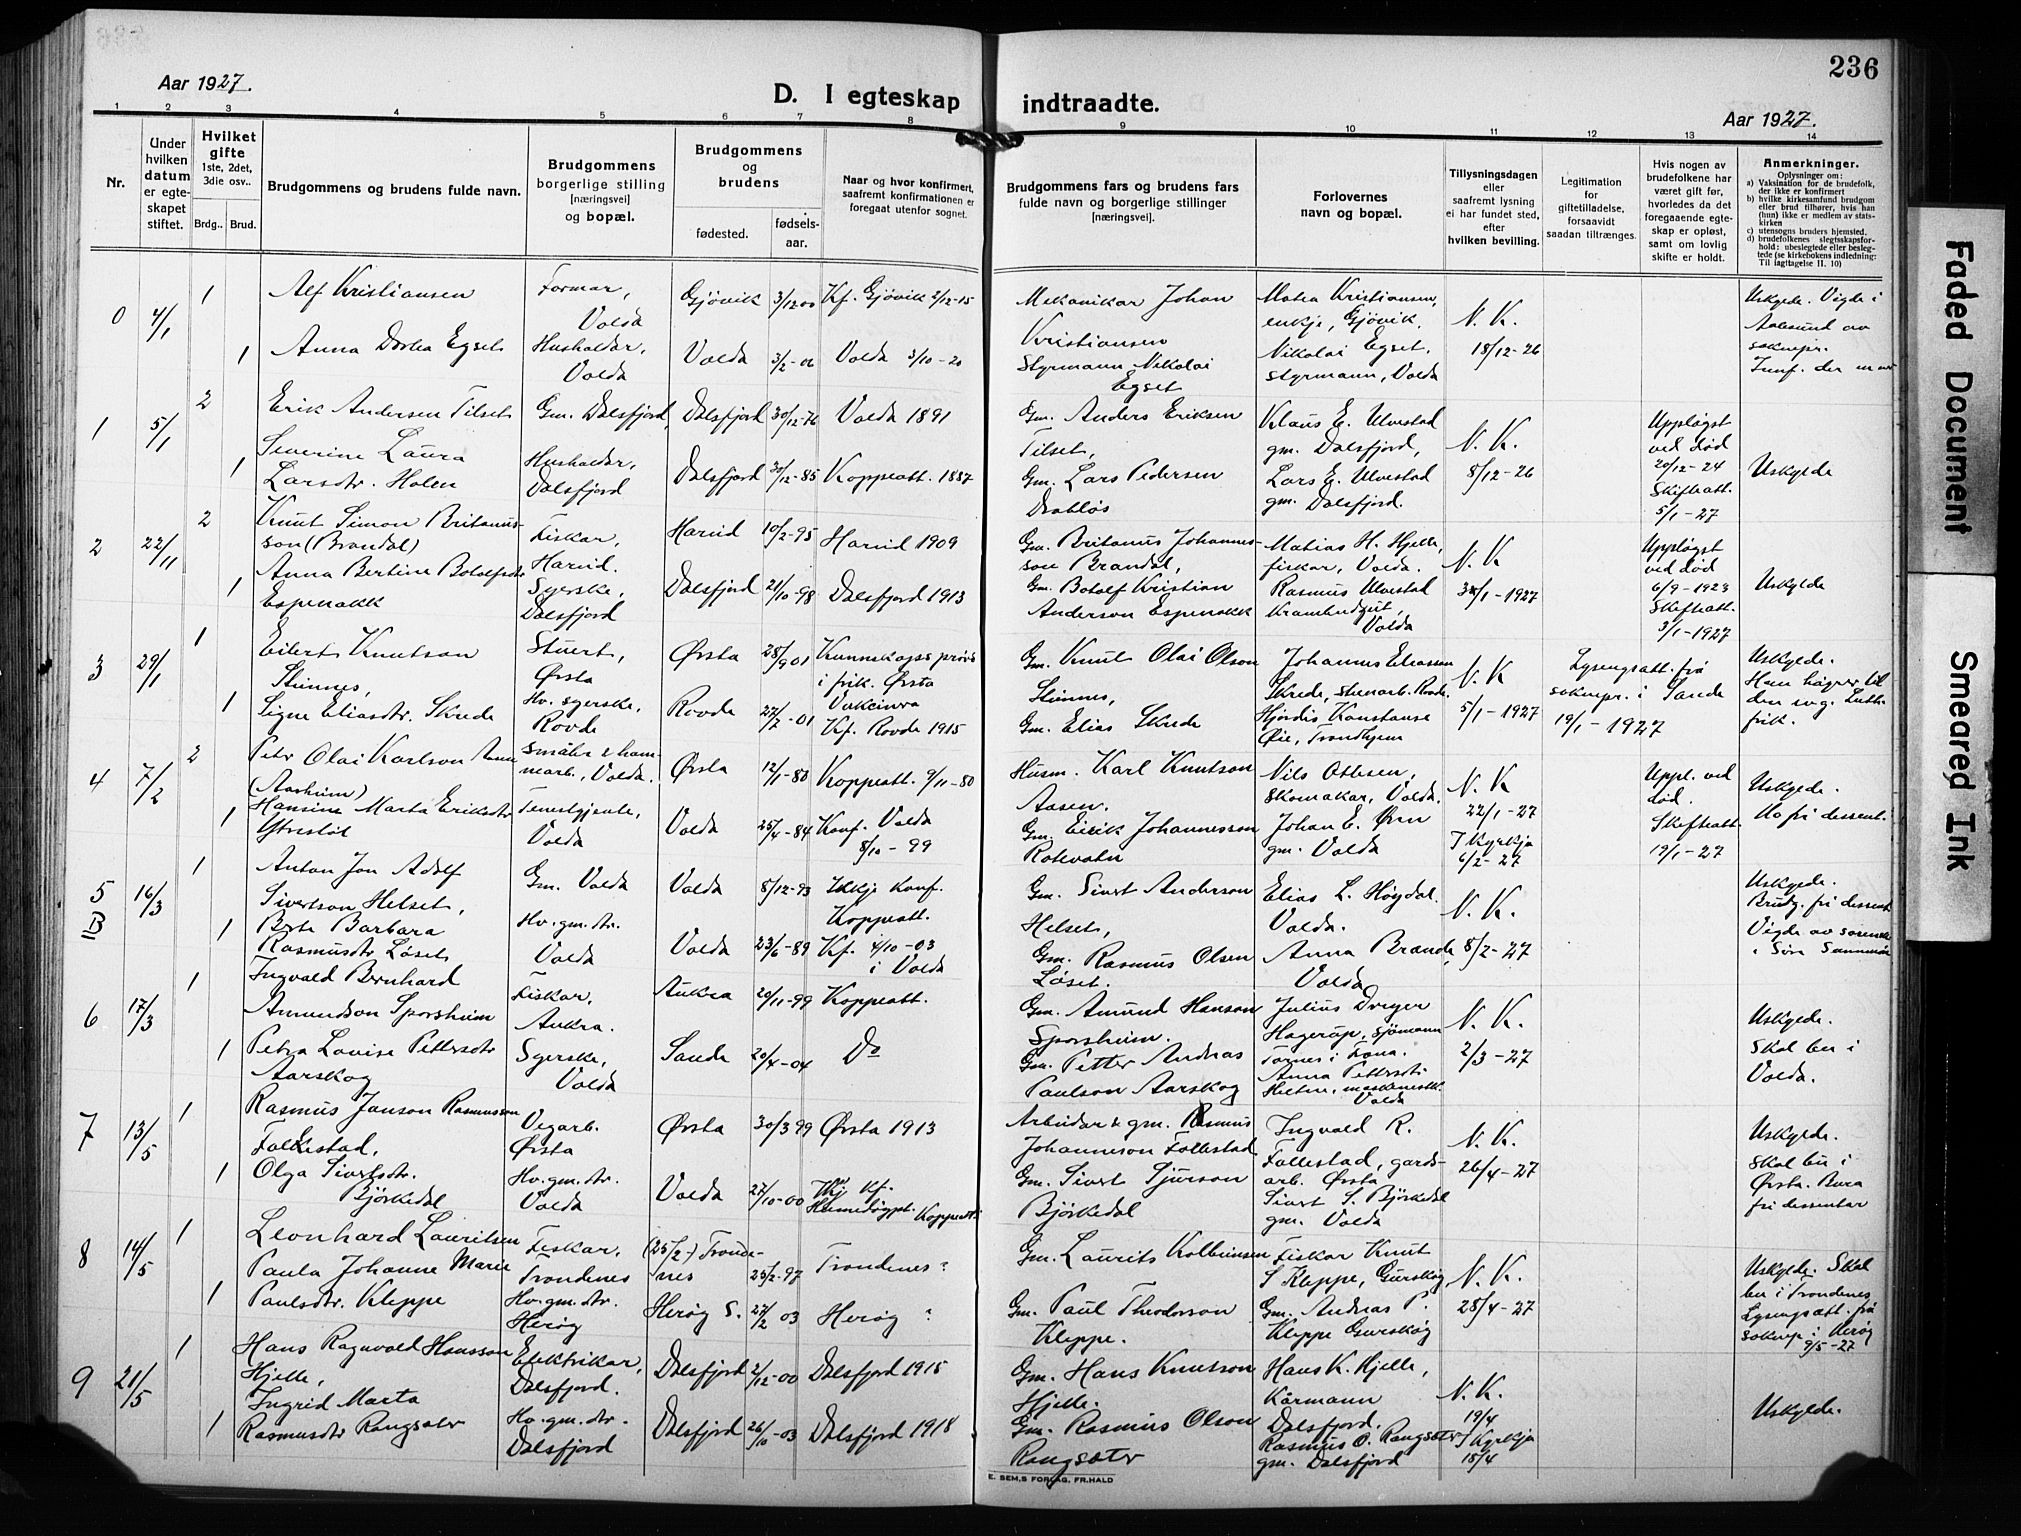 236
Aar 1927.
D. I egteskap indtraadte.
Aar 1927.
1 2 3 4 5 6 7 8 9 10 11 12 13 14
Nr.
Under hvilken datum er egteskapet stiftet.
Hvilket gifte 1ste, 2det, 3die osv..
Brdg.. Brud.
Brudgommens og brudens fulde navn.
Brudgommens borgerlige stilling [næringsvei] og bopæl.
Brudgommens og brudens
fødested.
fødselsaar.
Naar og hvor konfirmert, saafremt konfirmationen er foregaat utenfor sognet.
Brudgommens fars og brudens fars fulde navn og borgerlige stillinger [næringsvei].
Forlovernes navn og bopæl.
Tillysningsdagen eller saafremt lysning ei har fundet sted, efter hvilken bevilling.
Legitimation for giftetilladelse, forsaavidt saadan tiltrænges.
Hvis nogen av brudefolkene har været gift før, hvorledes da det foregaaende egteskap er opløst, samt om lovlig skifte er holdt.
Anmerkninger.
Oplysninger om:
a) Vaksination for de brudefolk, der ikke er konfirmert
b) hvilke kirkesamfund brudgom eller brud tilhører, hvis han (hun) ikke er medlem av statskirken
c) utensogns bruders hjemsted.
d) brudefolkenes slegtsskapsforhold: ubeslegtede eller beslegtede (se kirkebokens indledning: Til iagttagelse II. 10)
0 4/1 1 Alf Kristiansen Formar, Volda Gjövik 3/12 00 Kf. Gjövik 2/12-15 Mekanikar Johan Kristiansen Matea Kristiansen, enkje, Gjövik. N. K. 18/12-26 Uskylde. Vigde i Aalesund av soknepr.
1 Anna Dortea Egset Hushaldar, Volda Volda 3/2-06 Volda 3/10-20 Styrmann Nikolai Egset Nikolai Egset, styrmann, Volda
1 5/1 2 Erik Andersen Tilset Gm. Dalsfjord, Dalsfjord 30/12-76 Volda 1891 Gm. Anders Eriksen Tilset, Klaus E. Ulvestad gm. Dalsfjord, N. K. 8/12-26 Upplöyst ved död 20/12-24 Skifteatt. 5/1-27 Uskylde
1 Severine Laura Larsdtr. Holen Hushaldar, Dalsfjord Dalsfjord 30/12-85 Koppeatt. 1887 Gm. Lars Pedersen Drabløs Lars E. Ulvestad gm. Dalsfjord.
2 22/11 2 Knut Simon Britanusson (Brandal) Fiskar, Hareid. Hareid 10/2-95 Hareid 1909 Gm. Britanus Johannesson Brandal, Matias H. Hjelle, fiskar, Volda. N. K /1-1927 Upplöyst ved död 6/9-1923 Skifteatt. 3/1-1927 Uskylde
1 Anna Bertine Botolfsdtr Espenakk Syerske, Dalsfjord Dalsfjord 21/10-98 Dalsfjord 1913 Gm. Botolf Kristian Anderson Espenakk Rasmus Ulvestad Volda
3 29/1 1 Eilert Knutson Steinnes, Stuert, Ørsta Ørsta 28/9 01 Kunnskapspröve i frik. Ørsta Gm. Knut Olai Olson Steinnes, Johannes Eliassen Skrede, stenarb. Rovde. N. K 5/1-1927 Lysingsatt. frå soknepr. i Sande 19/1-1927 Uskylde. Han høyrer til den evg. Luth. frik.
1 Signe Eliasdtr. Skrede Hv. syerske, Rovde Rovde 27/7-01 Kf. Rovde 1915 Gm. Elias Skrede Hjördis Konstanse Øie, Trondhjem
4 7/2 2 Petr Olai Karlson Aasen (Aarheim) småbr. & hammarb., Volda. Ørsta 12/1-80 Koppeatt. 9/11-80 Husm. Karl Knutson Aasen. Nils Ottesen, Skomakar, Volda. N. K 22/1-27 I kyrkja 6/2-27 Uppl. ved död. Skifteatt. 19/1-27 Uskylde. Ho fri dessent.
1 Hansine Marta Eriksdtr Ytrestöl Tenestgjente, Volda Volda 25/4-84 Konf. Volda 8/10-99 Gm. Eirik Johannesson Rotevatn Johan E. Øren gm. Volda
5 B 16/3 1 Anton Jon Adolf Sivertson Helset, Gm. Volda Volda 8/12-93 Ikkje konf. Koppeatt. Gm. Sivert Anderson Helset, Elias L. Høydal. Volda. N. K. 8/2-27 Uskylde. Brudg. fri dessent Vigde av sorenskr. i Søre Sunnmøre
1 Berte Barbara Rasmusdtr Løset Hv. gm. dtr. Volda Volda 23/6-89 Kf. 4/10-03 i Volda Gm. Rasmus Olsen Løset. Anna Brande, Volda
6 17/3 1 Ingvald Bernhard Amundson Sporsheim Fiskar, Aukra. Aukra 20/11-99 Koppeatt. Gm. Amund Hanson Sporsheim. Julius Dreyer Hagerup, sjömann Tornes i Fræna. N. K. 2/3-27 Uskylde. Skal bu i Volda.
1 Petra Lovise Pettersdtr Aarskog Syerske, Volda Sande 20/4-04 Do Gm. Petter Andreas Paulson Aarskog Anna Pettersdtr. Volda
7 13/5 1 Rasmus Janson Rasmusson Folkestad, Vegarb. Ørsta Ørsta 30/3 99 Ørsta 1913 Arbeidar & gm. Rasmus Johanneson Follestad Ingvald R. Follestad, gardsarb. Ørsta N. K. 26/4-27 Uskylde. Skal bu i Ørsta. Brura fri dessentar
1 Olga Sivertsdtr. Björkedal Hv. gm. dtr. Volda Volda 27/10-00 Ikkj kf. Heimedöypt. Koppeatt. Gm. Sivert Sjurson Björkedal Sivert S. Björkedal gm. Volda
8 14/5 1 Leonhard Lauritsen Fiskar, Trondenes (25/2-) Trondenes 25/2-97 Trondenes? Gm. Laurits Kolbeinsen Fiskar Knut S Kleppe, Gurskøy N. K. 28/4-27 Uskylde. Skal bu i Trondenes. Lysingsatt. frå soknep i Herøy 9/5-27
1 Paula Johanne Marie Paulsdtr. Kleppe Hv. gm. dtr. Herøy Herøy S. 27/2 03 Herøy ? Gm. Paul Theodorson Kleppe. Gm. Andreas P. Kleppe Gurskøy
9 21/5 1 Hans Ragnvald Hansson Hjelle, Elektrikar, Dalsfjord. Dalsfjord 2/12-00 Dalsfjord 1915 Gm. Hans Knutson Hjelle. Hans K. Hjelle, Kårmann Dalsfjord. N. K. 19/4 I Kyrkja 15/4 Uskylde.
1 Ingrid Marta Rasmusdtr Rangsæter Hv. gm. dtr. Dalsfjord Dalsfjord 26/10-03 Dalsfjord 1918 Gm. Rasmus Olson Rangsæter Rasmus O. Rangsæter gm. Dalsfjord
E. SEM,S FORLAG, FR.HALD
Faded Document
Smeared Ink